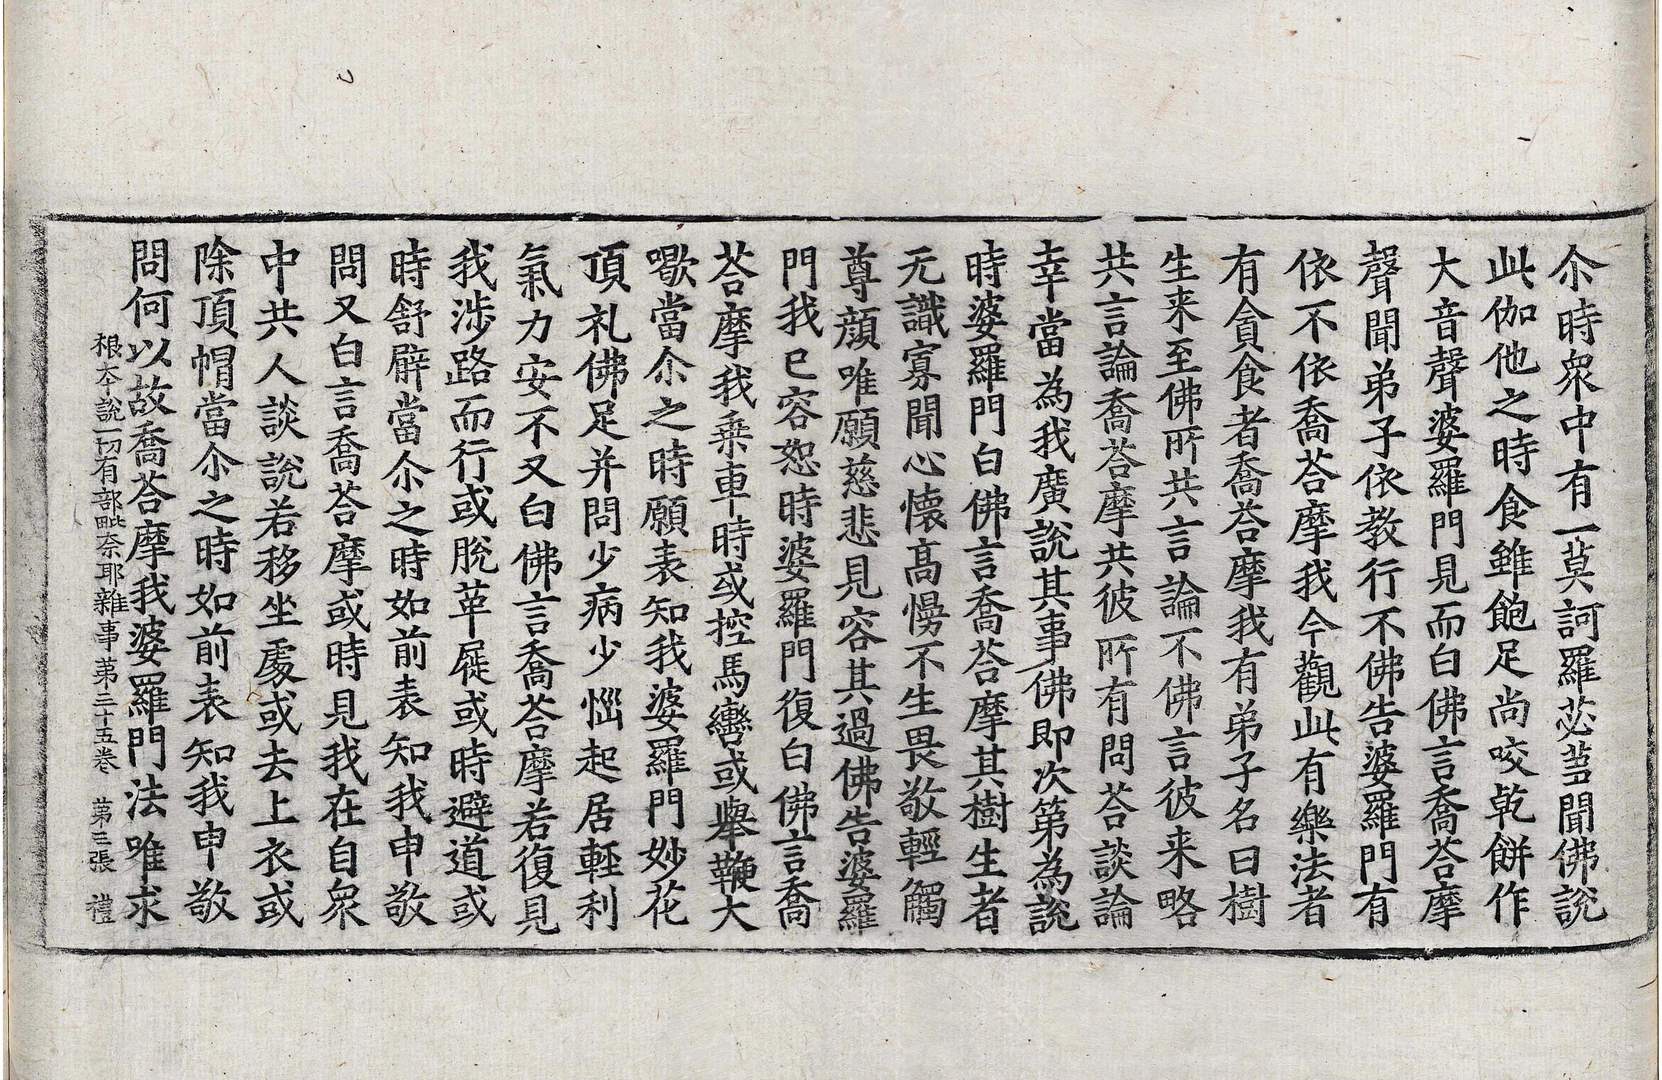 尒時衆中有一莫訶羅苾蒭聞佛說
此伽他之時食雖飽足尚咬乾餅作
大音聲婆羅門見而白佛言喬荅摩
聲聞弟子依教行不佛告婆羅門有
依不依喬荅摩我今觀此有樂法者
有貪食者喬荅摩我有弟子名曰樹
生来至佛所共言論不佛言彼来略
共言論喬荅摩共彼所有問荅談論
幸當為我廣說其事佛即次第為說
時婆羅門白佛言喬荅摩其樹生者
无識寡聞心懐髙慢不生畏敬輕觸
尊顔唯願慈悲見容其過佛告婆羅
門我已容恕時婆羅門復白佛言喬
荅摩我乗車時或控馬轡或舉鞭大
喝當尒之時願表知我婆羅門妙花
頂礼佛足并問少病少惱起居輕利
氣力安不又白佛言喬荅摩若復見
我涉路而行或脫革屣或時避道或
時舒臂當尒之時如前表知我申敬
問又白言喬荅摩或時見我在自衆
中共人談說若移坐處或去上衣或
除頂帽當尒之時如前表知我申敬
問何以故喬荅摩我婆羅門法唯求
根本說一切有部毗奈耶雜事第三十五卷 第三張 禮